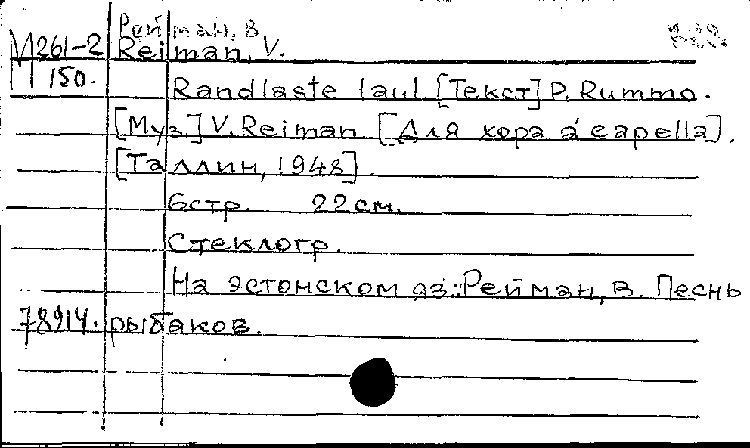 Рейман, В.
М261-2 Reiman, V.
М 150.
Randlaste laul [Текст] P. Rummo.
[Муз.] V. Reiman [Для хора a'capella].
[Таллин, 1948].
6стр. 22 см.
Стеклогр.
На эстонском яз.: Рейман, В. Песнь
78914. рыбаков.